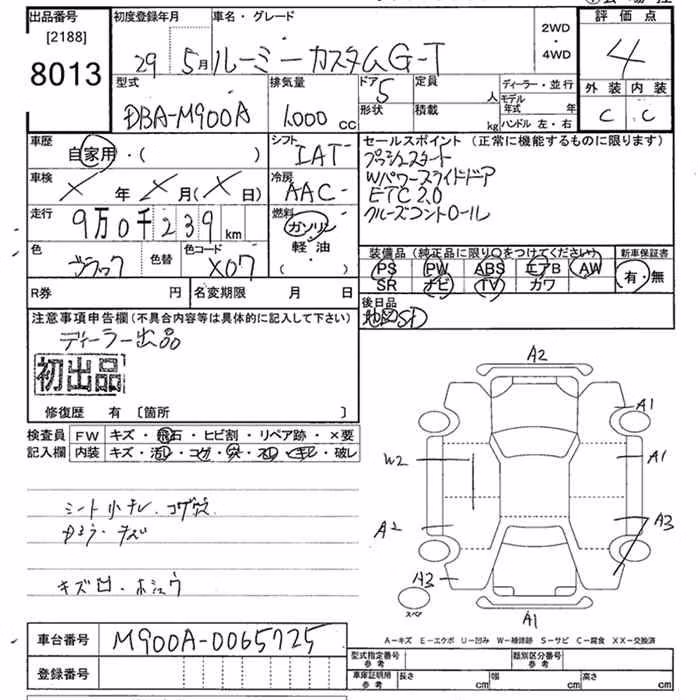 出品番号 [2188] 8013
初度登録年月 29 5月
車名・グレード ルーミーカスタムG-T
2WD・4WD
評価点 4
外装 C 内装 C
型式 DBA-M900A
排気量 1,000 cc
ドア 5 形状
定員 人 積載 kg
ディーラー・並行
モデル年式 年
ハンドル 左・右
車歴 自家用・( )
シフト IAT
車検 × 年 × 月(× 日)
冷房 AAC
走行 9万0千239 km
燃料 ガソリン 軽油 ( )
色 ブラック 色替
色コード X07
セールスポイント (正常に機能するものに限ります)
プッシュスタート
Wパワースライドドア
ETC2.0
クルーズコントロール
装備品 (純正品に限り○をつけてください)
PS PW ABS エアB AW
SR ナビ TV カワ
新車保証書 有・無
R券 円 名変期限 月 日
後日品
地図SD
注意事項申告欄(不具合内容等は具体的に記入して下さい)
ディーラー出品
初出品
修復歴 有 [箇所 ]
検査員記入欄
FW キズ・飛石・ヒビ割・リペア跡・×要
内装 キズ・汚レ・コゲ・穴・スレ・キレ・破レ
シート小キレ、コゲ穴
キズ凹・ホシュウ
A2
A1
W2
A1
A2
A3
A3
スペア
A1
A-キズ E-エクボ U-凹み W-補修跡 S-サビ C-腐食 XX-交換済
車台番号 M900A-0065725
登録番号
型式指定番号 参考
類別区分番号 参考
車庫証明用 参考 長さ cm 幅 cm 高さ cm